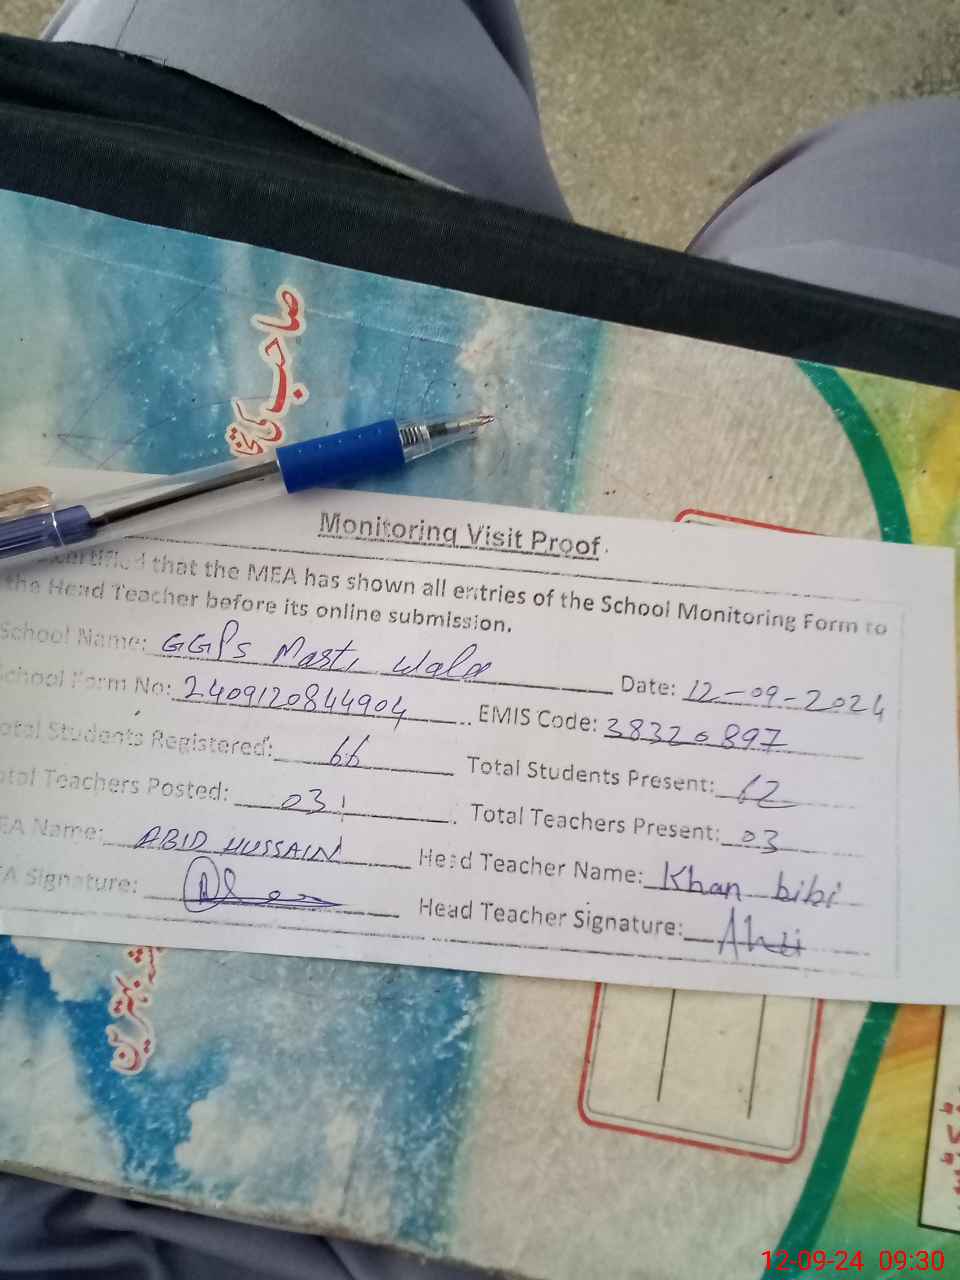 صاحب کی
Monitoring Visit Proof.
certified that the MEA has shown all entries of the School Monitoring Form to
the Head Teacher before its online submission.
School Name: GGPS Masti Wala Date: 12-09-2024
School Form No: 2409120844904 EMIS Code: 38320897
otal Students Registered: 66 Total Students Present: 62
otal Teachers Posted: 03 Total Teachers Present: 03
EA Name: ABID HUSSAIN Head Teacher Name: Khan bibi
EA Signature: Head Teacher Signature:
بہترین
12-09-24 09:30